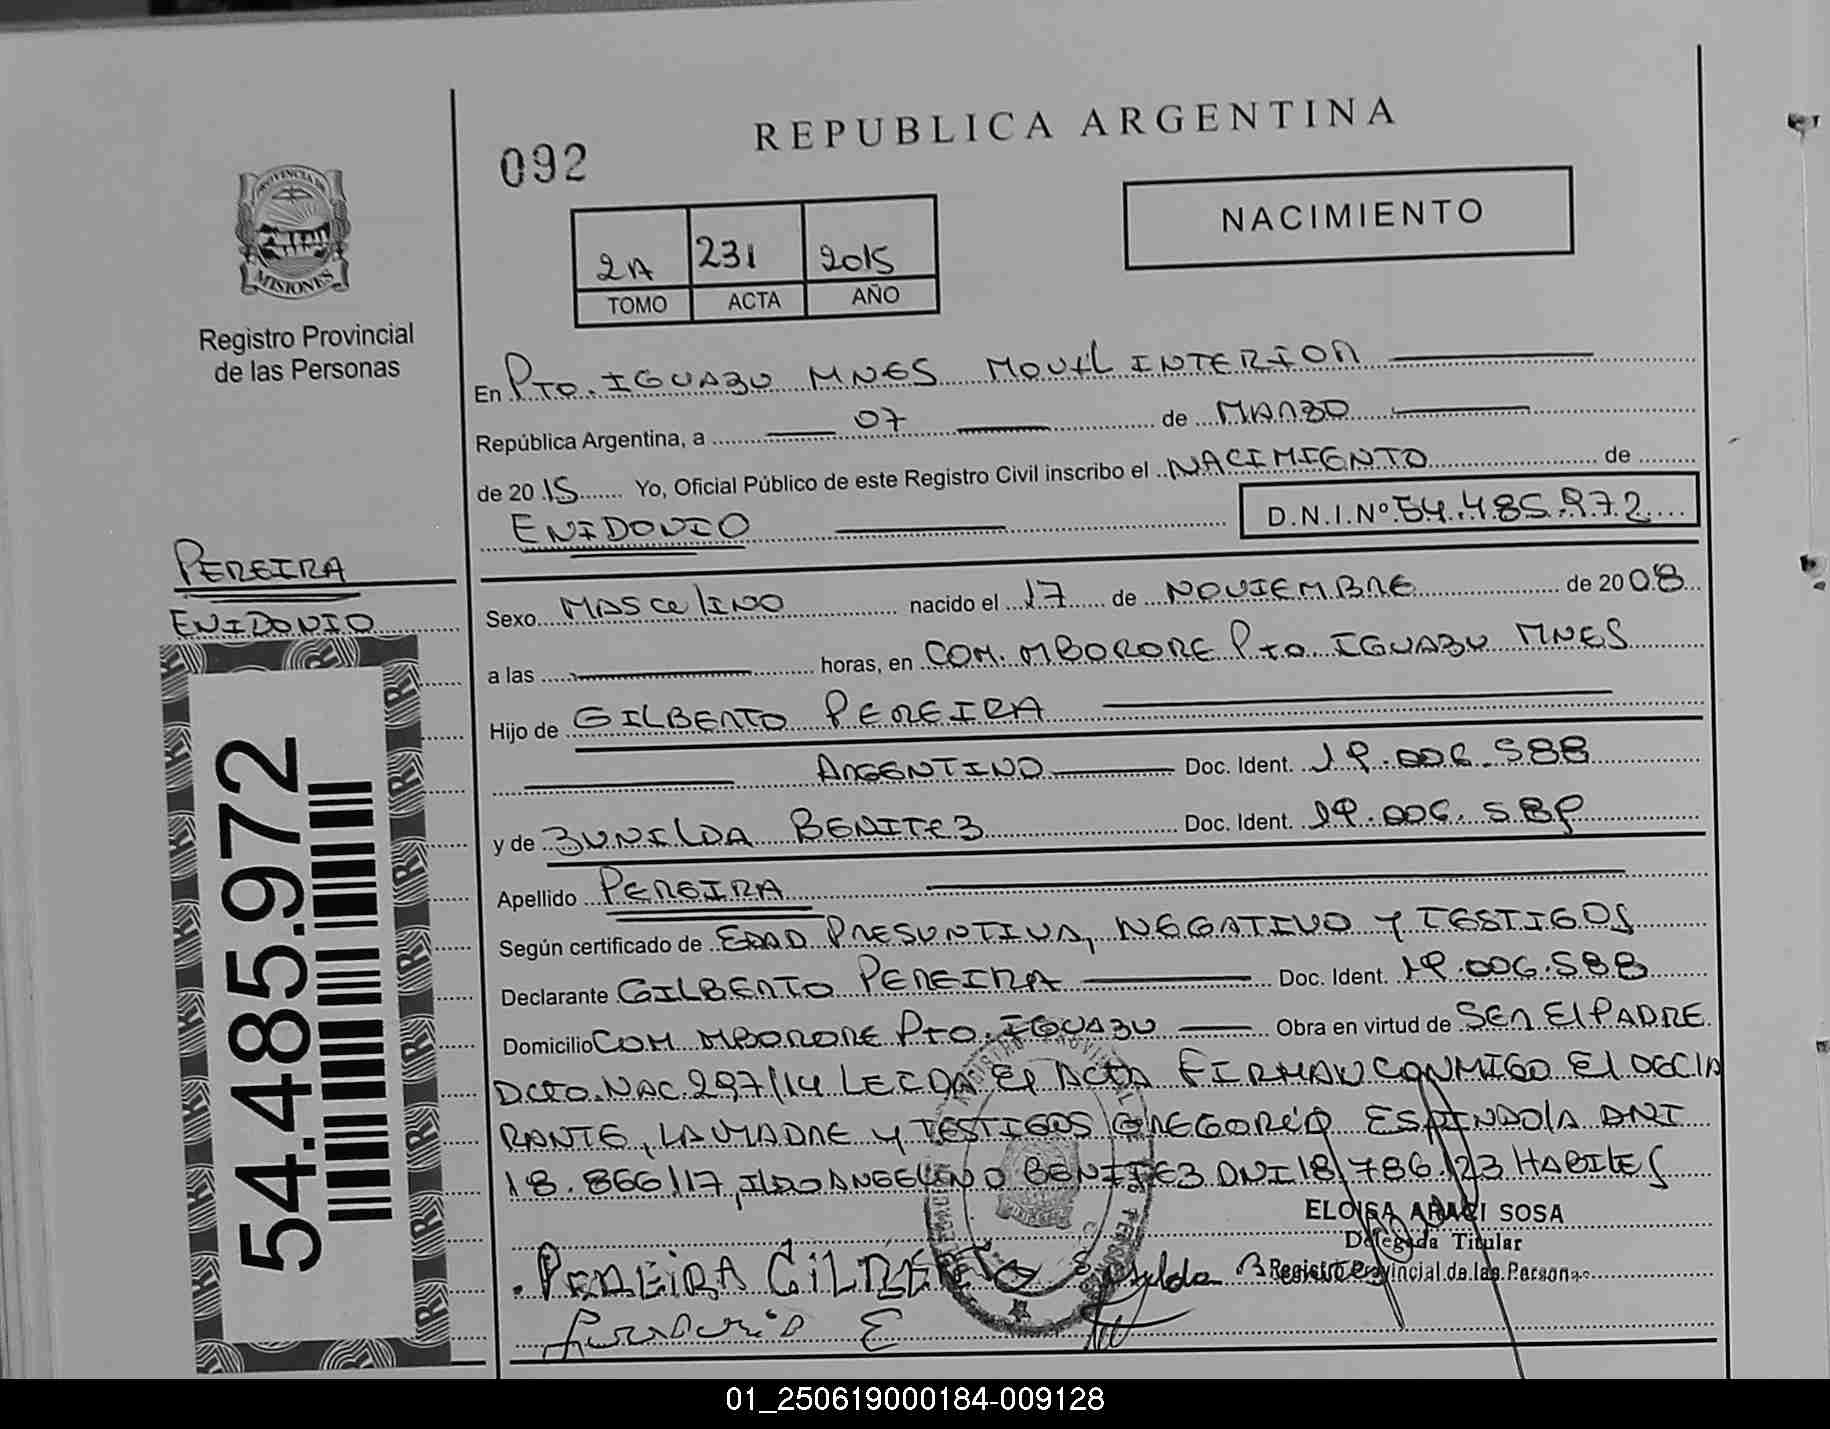 092
REPUBLICA ARGENTINA
NACIMIENTO
PROVINCIA DE
MISIONES
Registro Provincial
de las Personas
2A 231 2015
TOMO ACTA AÑO
En PTO. IGUAZU MNES MOVIL INTERIOR
República Argentina, a 07 de MARZO
de 2015 Yo, Oficial Público de este Registro Civil inscribo el NACIMIENTO de
ENIDONIO D.N.I.Nº 54.485.972
PEREIRA
ENIDONIO
54.485.972
Sexo MASCULINO nacido el 17 de NOVIEMBRE de 2008
a las horas, en COM. MBORORE PTO. IGUAZU MNES
Hijo de GILBERTO PEREIRA
ARGENTINO Doc. Ident. 19.006.588
y de ZUNILDA BENITEZ Doc. Ident. 19.006.589
Apellido PEREIRA
Según certificado de EDAD PRESUNTIVA, NEGATIVO Y TESTIGOS
Declarante GILBERTO PEREIRA Doc. Ident. 19.006.588
Domicilio COM MBORORE PTO. IGUAZU Obra en virtud de SER EL PADRE
DCTO. NAC. 297/14 LEIDA EL ACTA FIRMAN CONMIGO EL DECLA
RANTE, LA MADRE Y TESTIGOS GREGORIO ESPINDOLA DNI
18.866117, ILDO ANGELINO BENITEZ DNI 18.786.123 HABILES
ELOISA ARACI SOSA
Delegada Titular
Registro Provincial de las Personas
PEREIRA GILBERTO
01_250619000184-009128